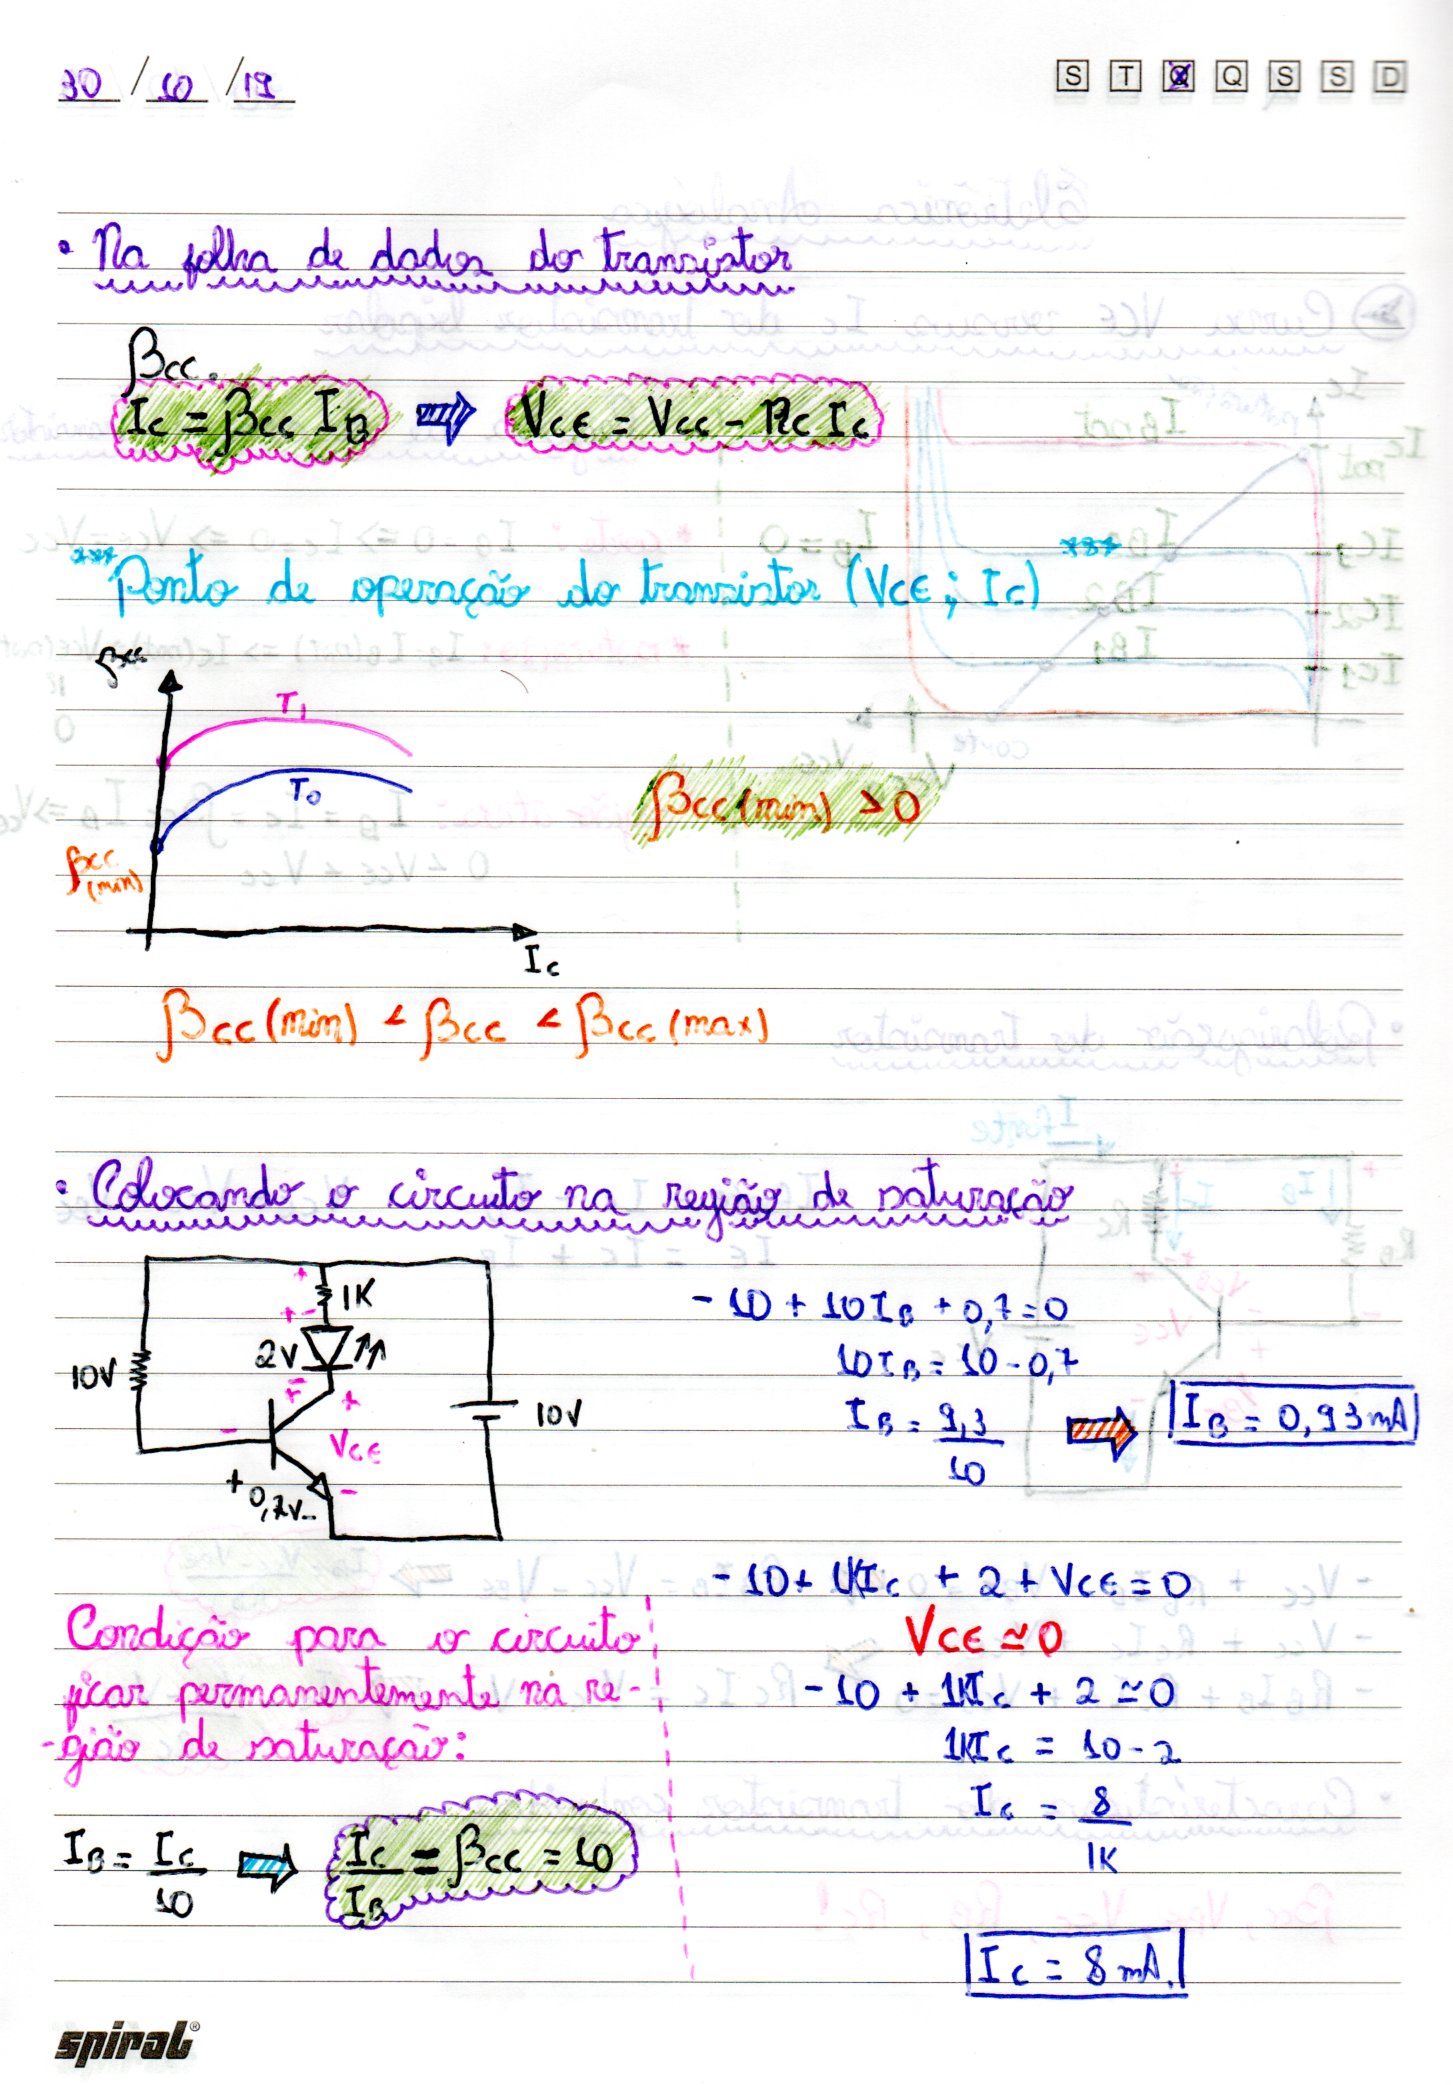 30 / 10 / 19
S T Q Q S S D
• Na folha de dados do transistor
βcc.
Ic = βcc IB ⇒ VCE = Vcc - Rc Ic
*** Ponto de operação do transistor (VCE ; Ic) ***
βcc
T1
T0
βcc (min) > 0
βcc
(min)
Ic
βcc (min) < βcc < βcc (max)
• Colocando o circuito na região de saturação
+
1K
+ -
2V
10V
- +
+
10V
-
VCE
+ 0,7V -
-
-10 + 10IB + 0,7 = 0
10IB = 10 - 0,7
IB = 9,3/10 ⇒ IB = 0,93mA
-10 + 1KIc + 2 + VCE = 0
Condição para o circuito
ficar permanentemente na re-
-gião de saturação:
IB = Ic/10 ⇒ Ic/IB = βcc = 10
VCE ≃ 0
-10 + 1KIc + 2 ≃ 0
1KIc = 10 - 2
Ic = 8/1K
Ic = 8mA.
spiral®